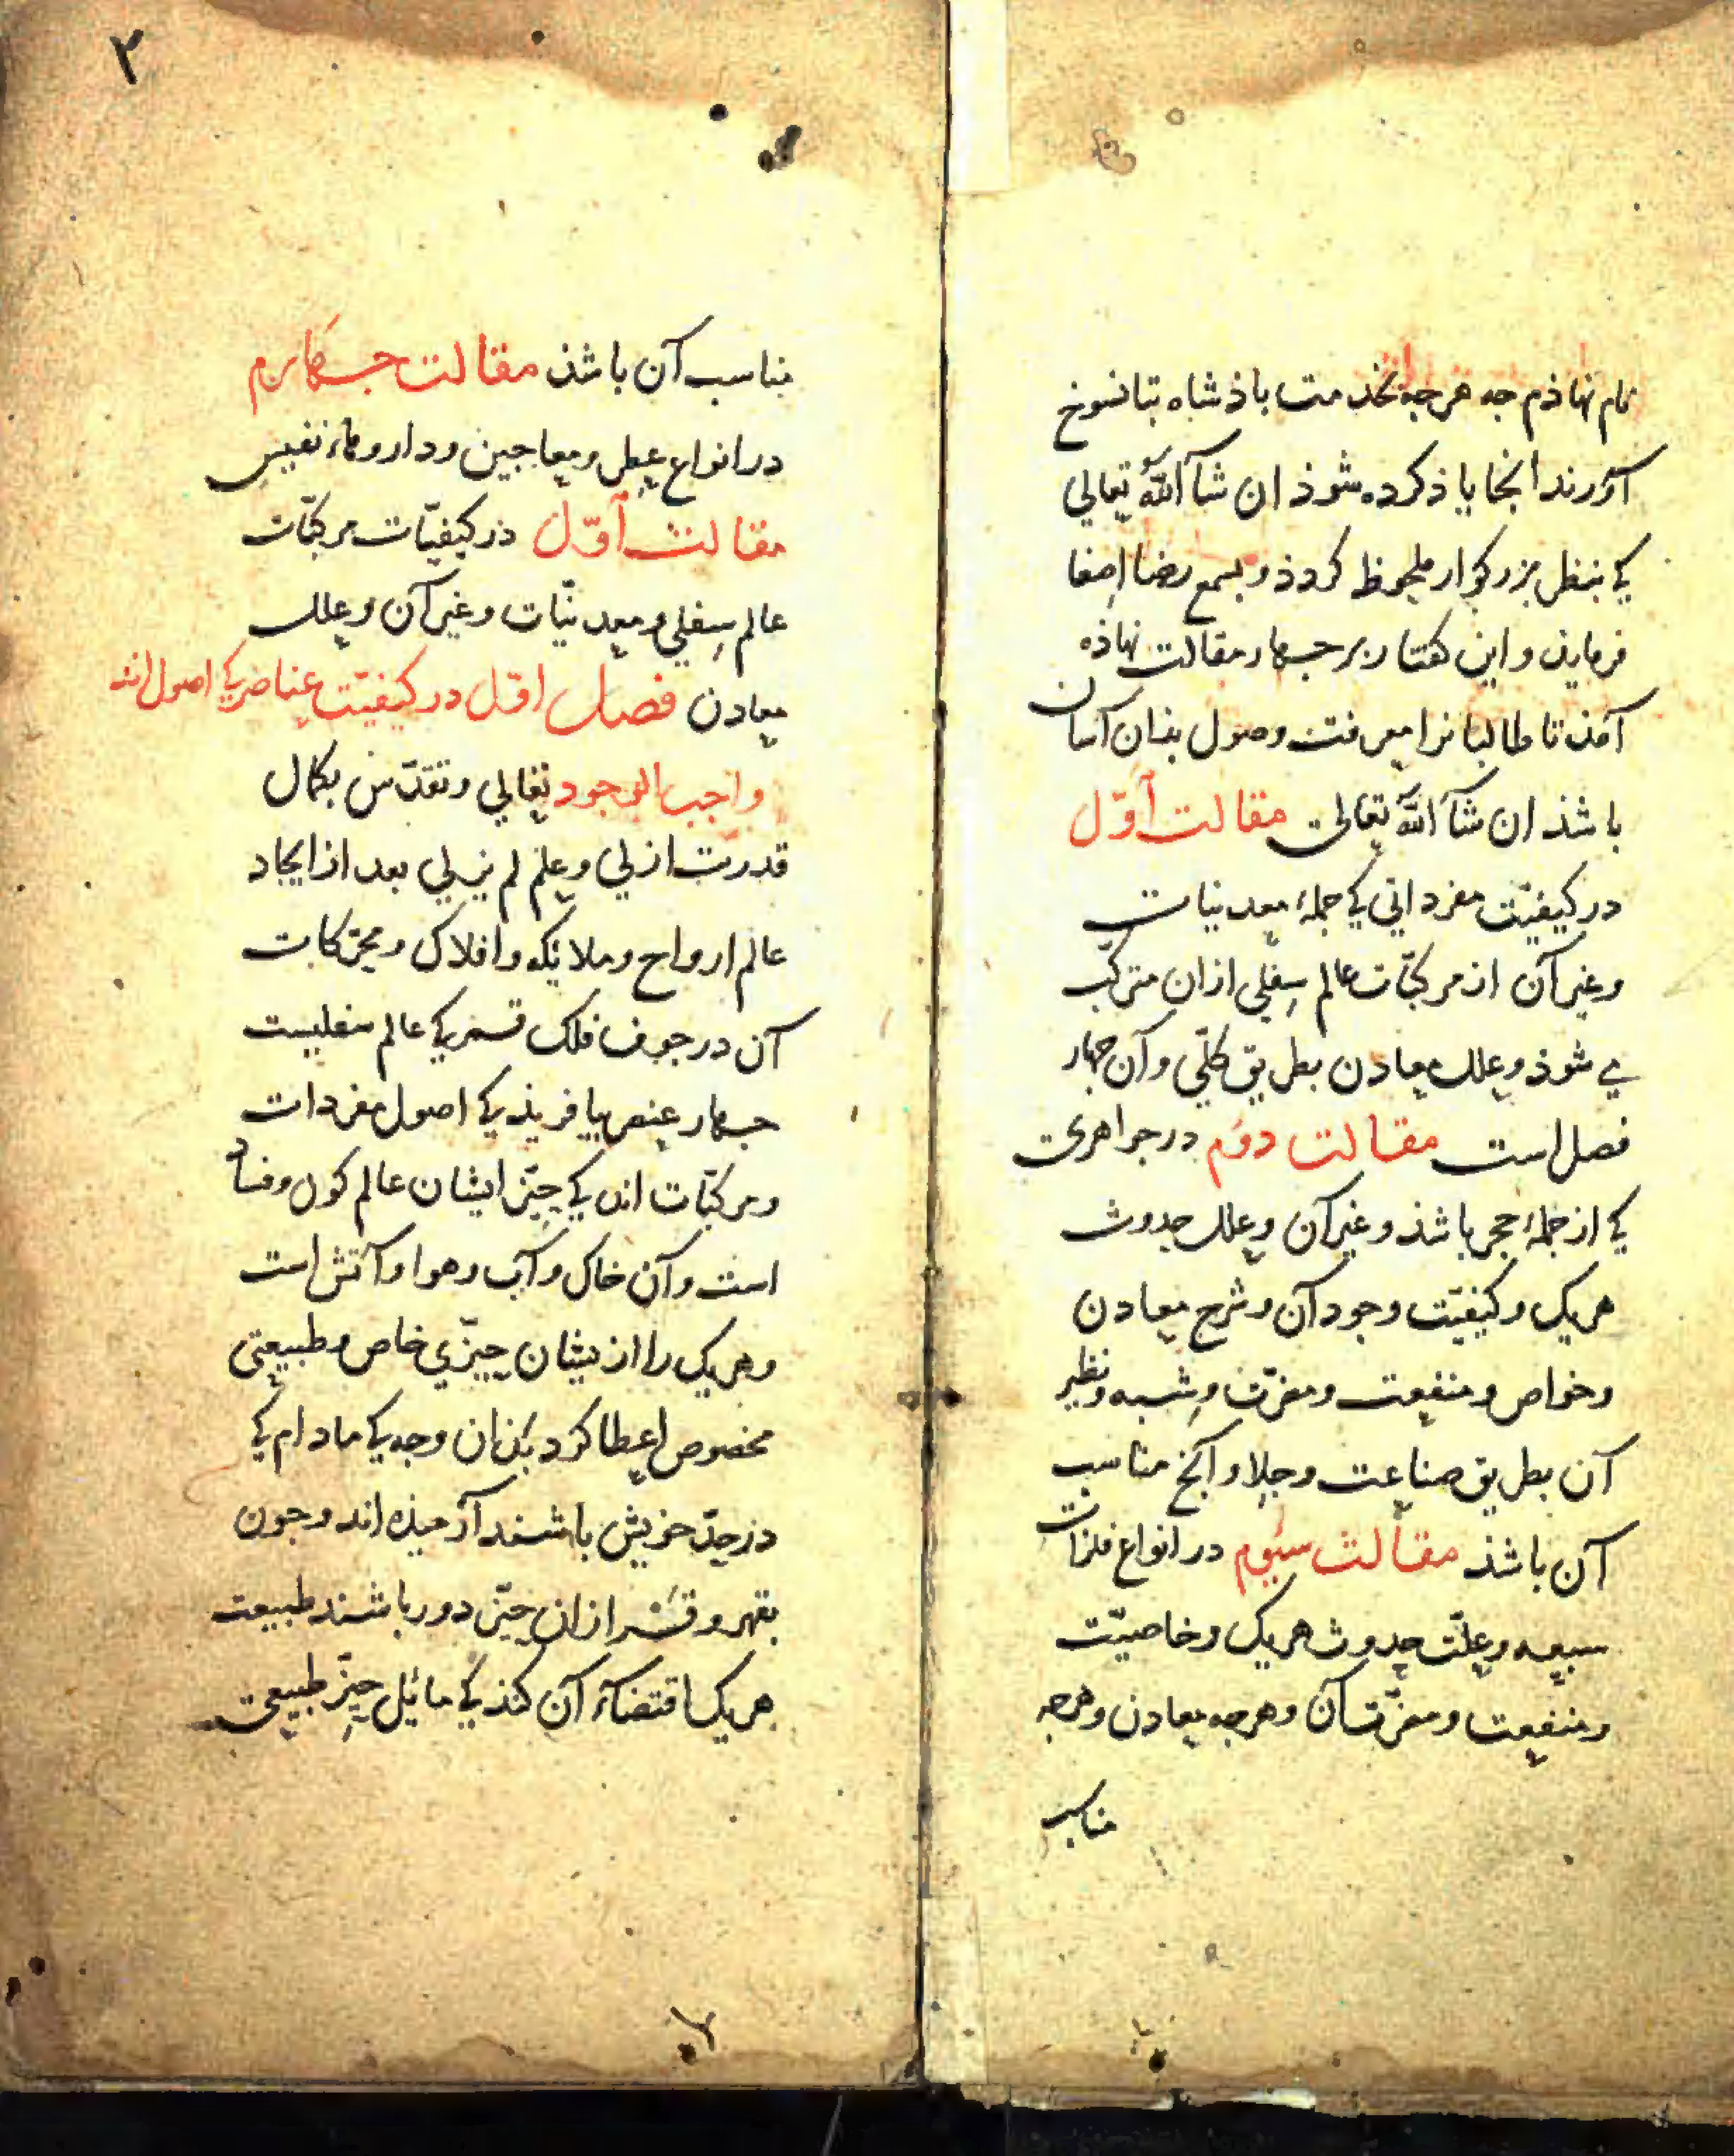 نام نهاذم جه هرجه بخدمت باذشاه بتانسوخ
آورند انجا یاذ کرده شوذ ان شآ اللّه تعالی
کی بنظر بزرکوار ملحوظ کردذ و بسمع رضا اصغا
فرماید و این کفتار بر جهار مقالت نهاذه
آمذ تا طالبانرا معرفت وصول بذان آسان
باشذ ان شآ اللّه تعالی مقالت اوّل
در کیفیّت مفرداتی کی جملۀ معدنیات
و غیر آن از مرکبّات عالم سفلی ازان مترکّب
می شوذ و علل معادن بطریق کلّی و آن جهار
فصل است مقالت دوم در جواهری
کی از جملۀ حجر باشذ و غیر آن و علل حدوث
هریک و کیفیّت وجود آن و شرح معادن
و خواص و منفعت و مضرّت و شبه و نظیر
آن بطریق صناعت و جلا و آنج مناسب
آن باشذ مقالت سیوم در انواع فلزات
سبعه و علّت حدوث هریک و خاصیّت
و منفعت و مضرّت آن و هرجه معادن و هرجه
مناسب
۲
مناسب آن باشذ مقالت جهارم
در انواع عطر و معاجین و داروهاء نفیس
مقالت اوّل در کیفیّات مرکبّات
عالم سفلی و معدنیّات و غیر آن و علل
معادن فصل اوّل در کیفیّت عناصر کی اصول اند
واجب الوجود تعالی و تقدّس بکمال
قدرت ازلی و علم لم یزلی بعد از ایجاد
عالم ارواح و ملائکه و افلاک و محرّکات
آن در جوف فلک قمر کی عالم سفلیست
جهار عنصر بیافریذ کی اصول مفردات
و مرکبّات اند کی حیّز ایشان عالم کون و فساد
است و آن خاک و آب و هوا و آتش است
و هریک را از یشان حیّزی خاص و طبیعتی
مخصوص اعطا کرد بذان وجه کی ماد ام کی
در حیّز خویش باشند آرمیذه اند و جون
بقهر و قسر ازان حیّز دور باشند طبیعت
هریک اقتضآء آن کند کی مائل حیّز طبیعی